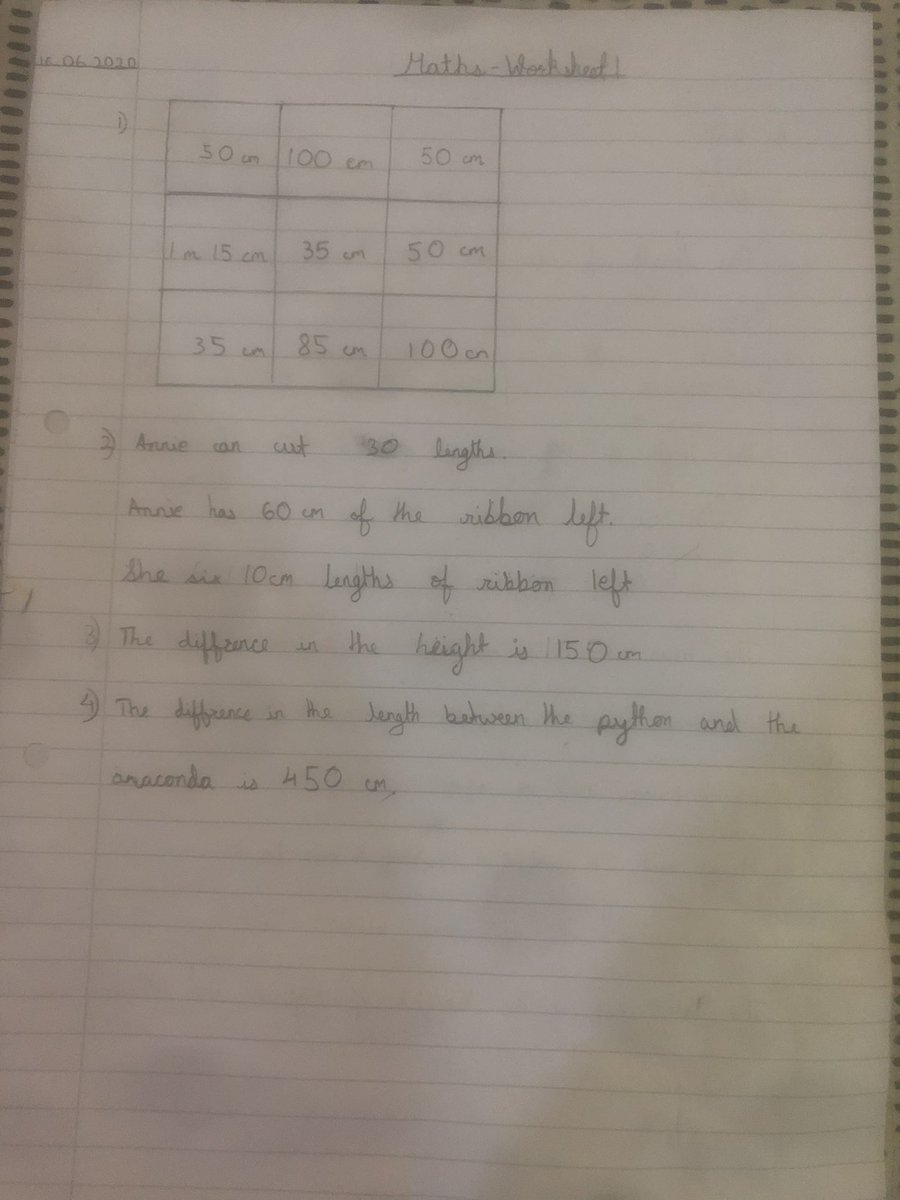 16.06.2020 Maths-Worksheet 1
1)
50 cm 100 cm 50 cm
1 m 15 cm 35 cm 50 cm
35 cm 85 cm 100 cm
2) Annie can cut 30 lengths.
Annie has 60 cm of the ribbon left.
She six 10cm lengths of ribbon left
3) The diffrence in the height is 1150 cm
4) The diffrence in the length between the python and the
anaconda is 450 cm,